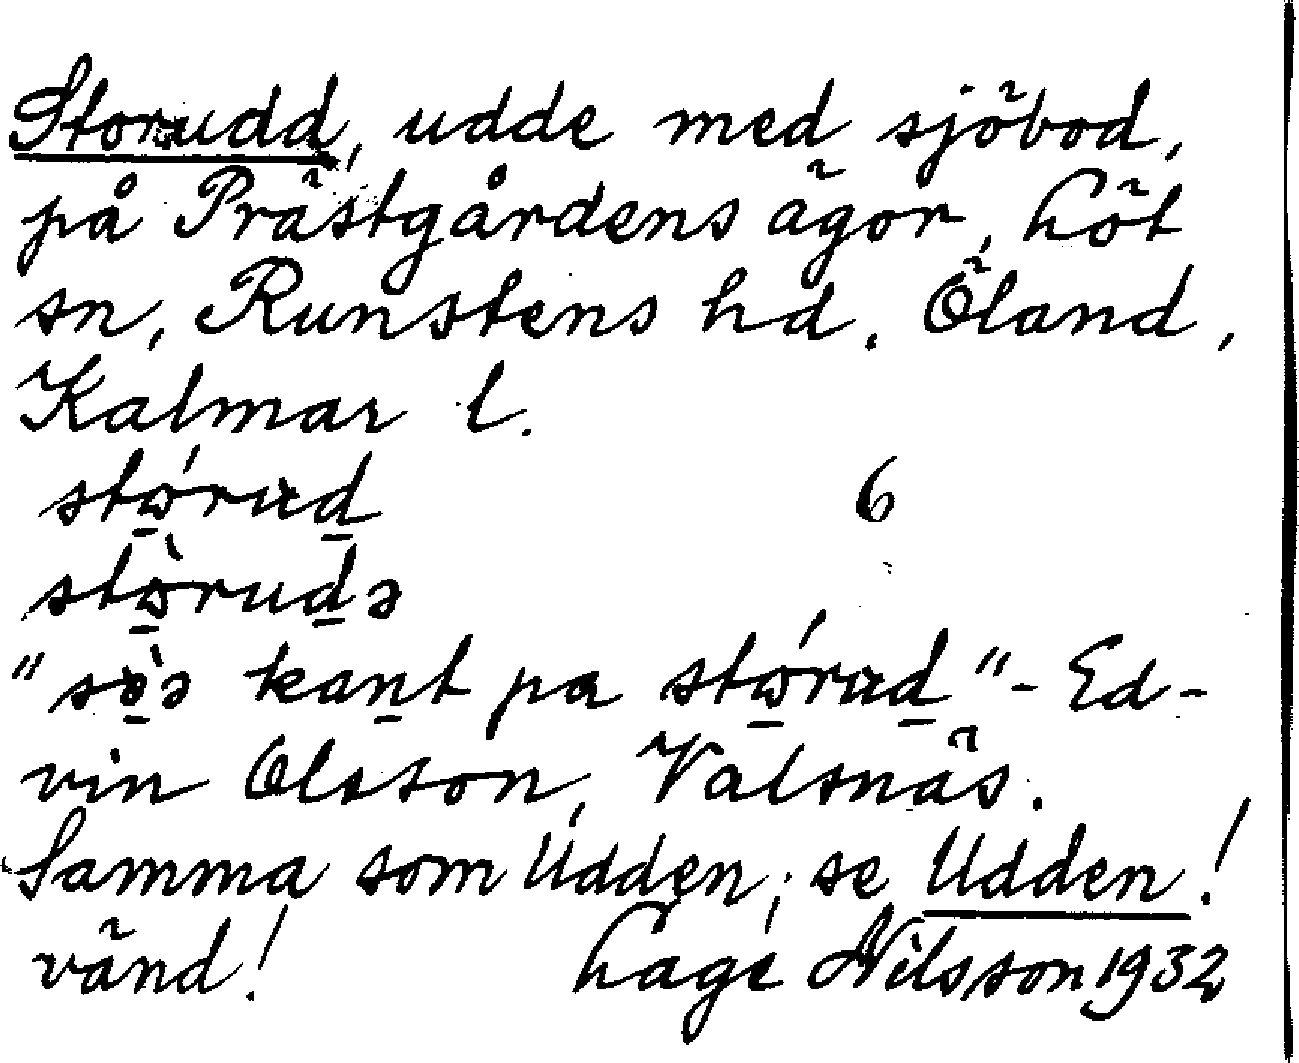 Storudd, udde med sjöbod,
på Prästgårdens ägor, Löt
sn, Runstens hd. Öland,
Kalmar l.
stώ̱rud̠ 6
stὼ̱rud̠ə
"sὼ̱ə kan̠t pa stώ̱rud̠" - Ed-
vin Olsson, Valsnäs.
Samma som Udden; se Udden!
vänd! Lage Nilsson 1932